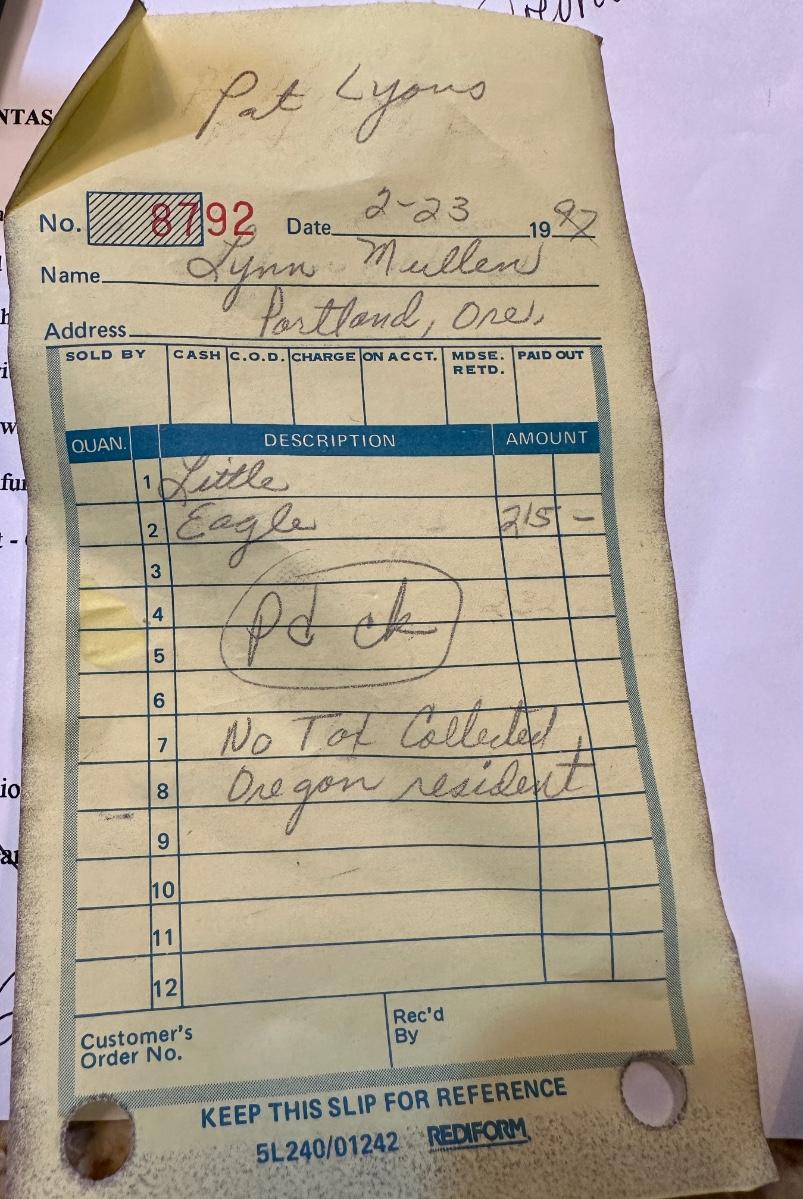 Pat Lyons
NTAS
No. 8792 Date 2-23 1997
Name Lynn Mullen
Address Portland, Ore.
SOLD BY CASH C.O.D. CHARGE ON ACCT. MDSE. RETD. PAID OUT
QUAN. DESCRIPTION AMOUNT
1 Little
2 Eagle 215 -
3
4 Pd ck
5
6
7 No Tax Collected
8 Oregon resident
9
10
11
12
Customer's Order No. Rec'd By
KEEP THIS SLIP FOR REFERENCE
5L240/01242 REDIFORM